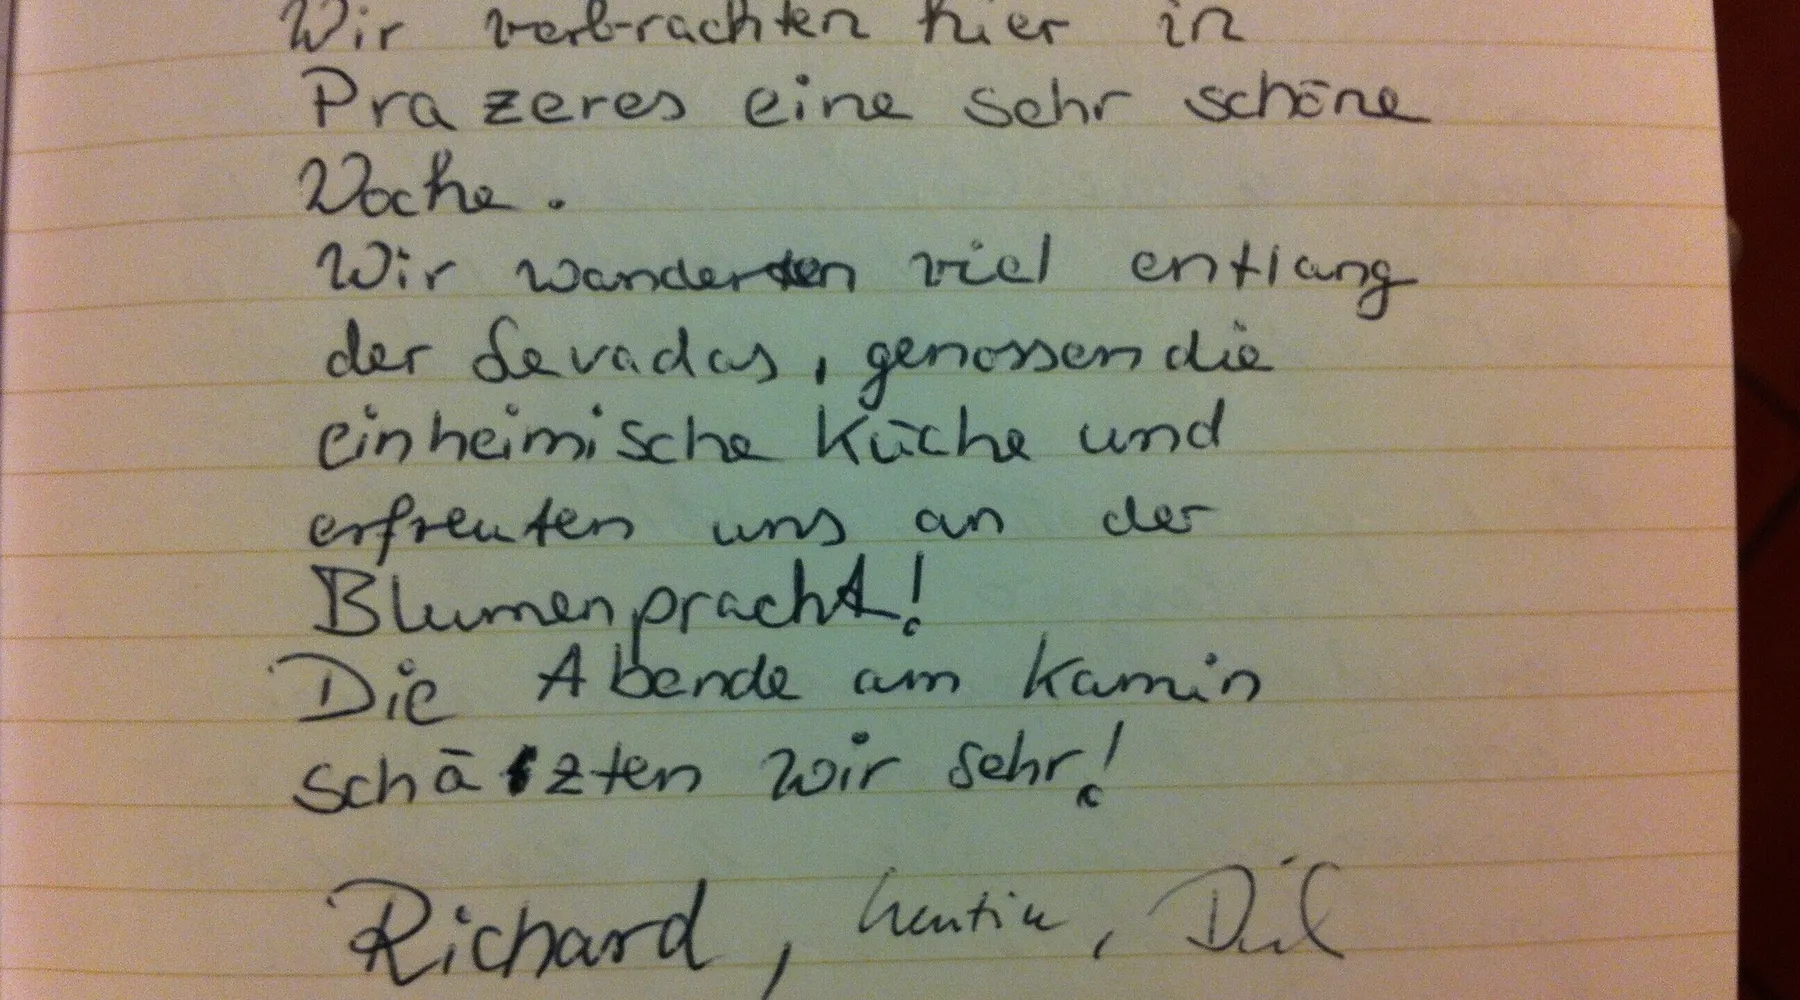 Wir verbrachten hier in
Prazeres eine sehr schöne
Woche.
Wir wanderten viel entlang
der Levadas, genossen die
einheimische Küche und
erfreuten uns an der
Blumenpracht!
Die Abende am Kamin
schätzten wir sehr!
Richard,